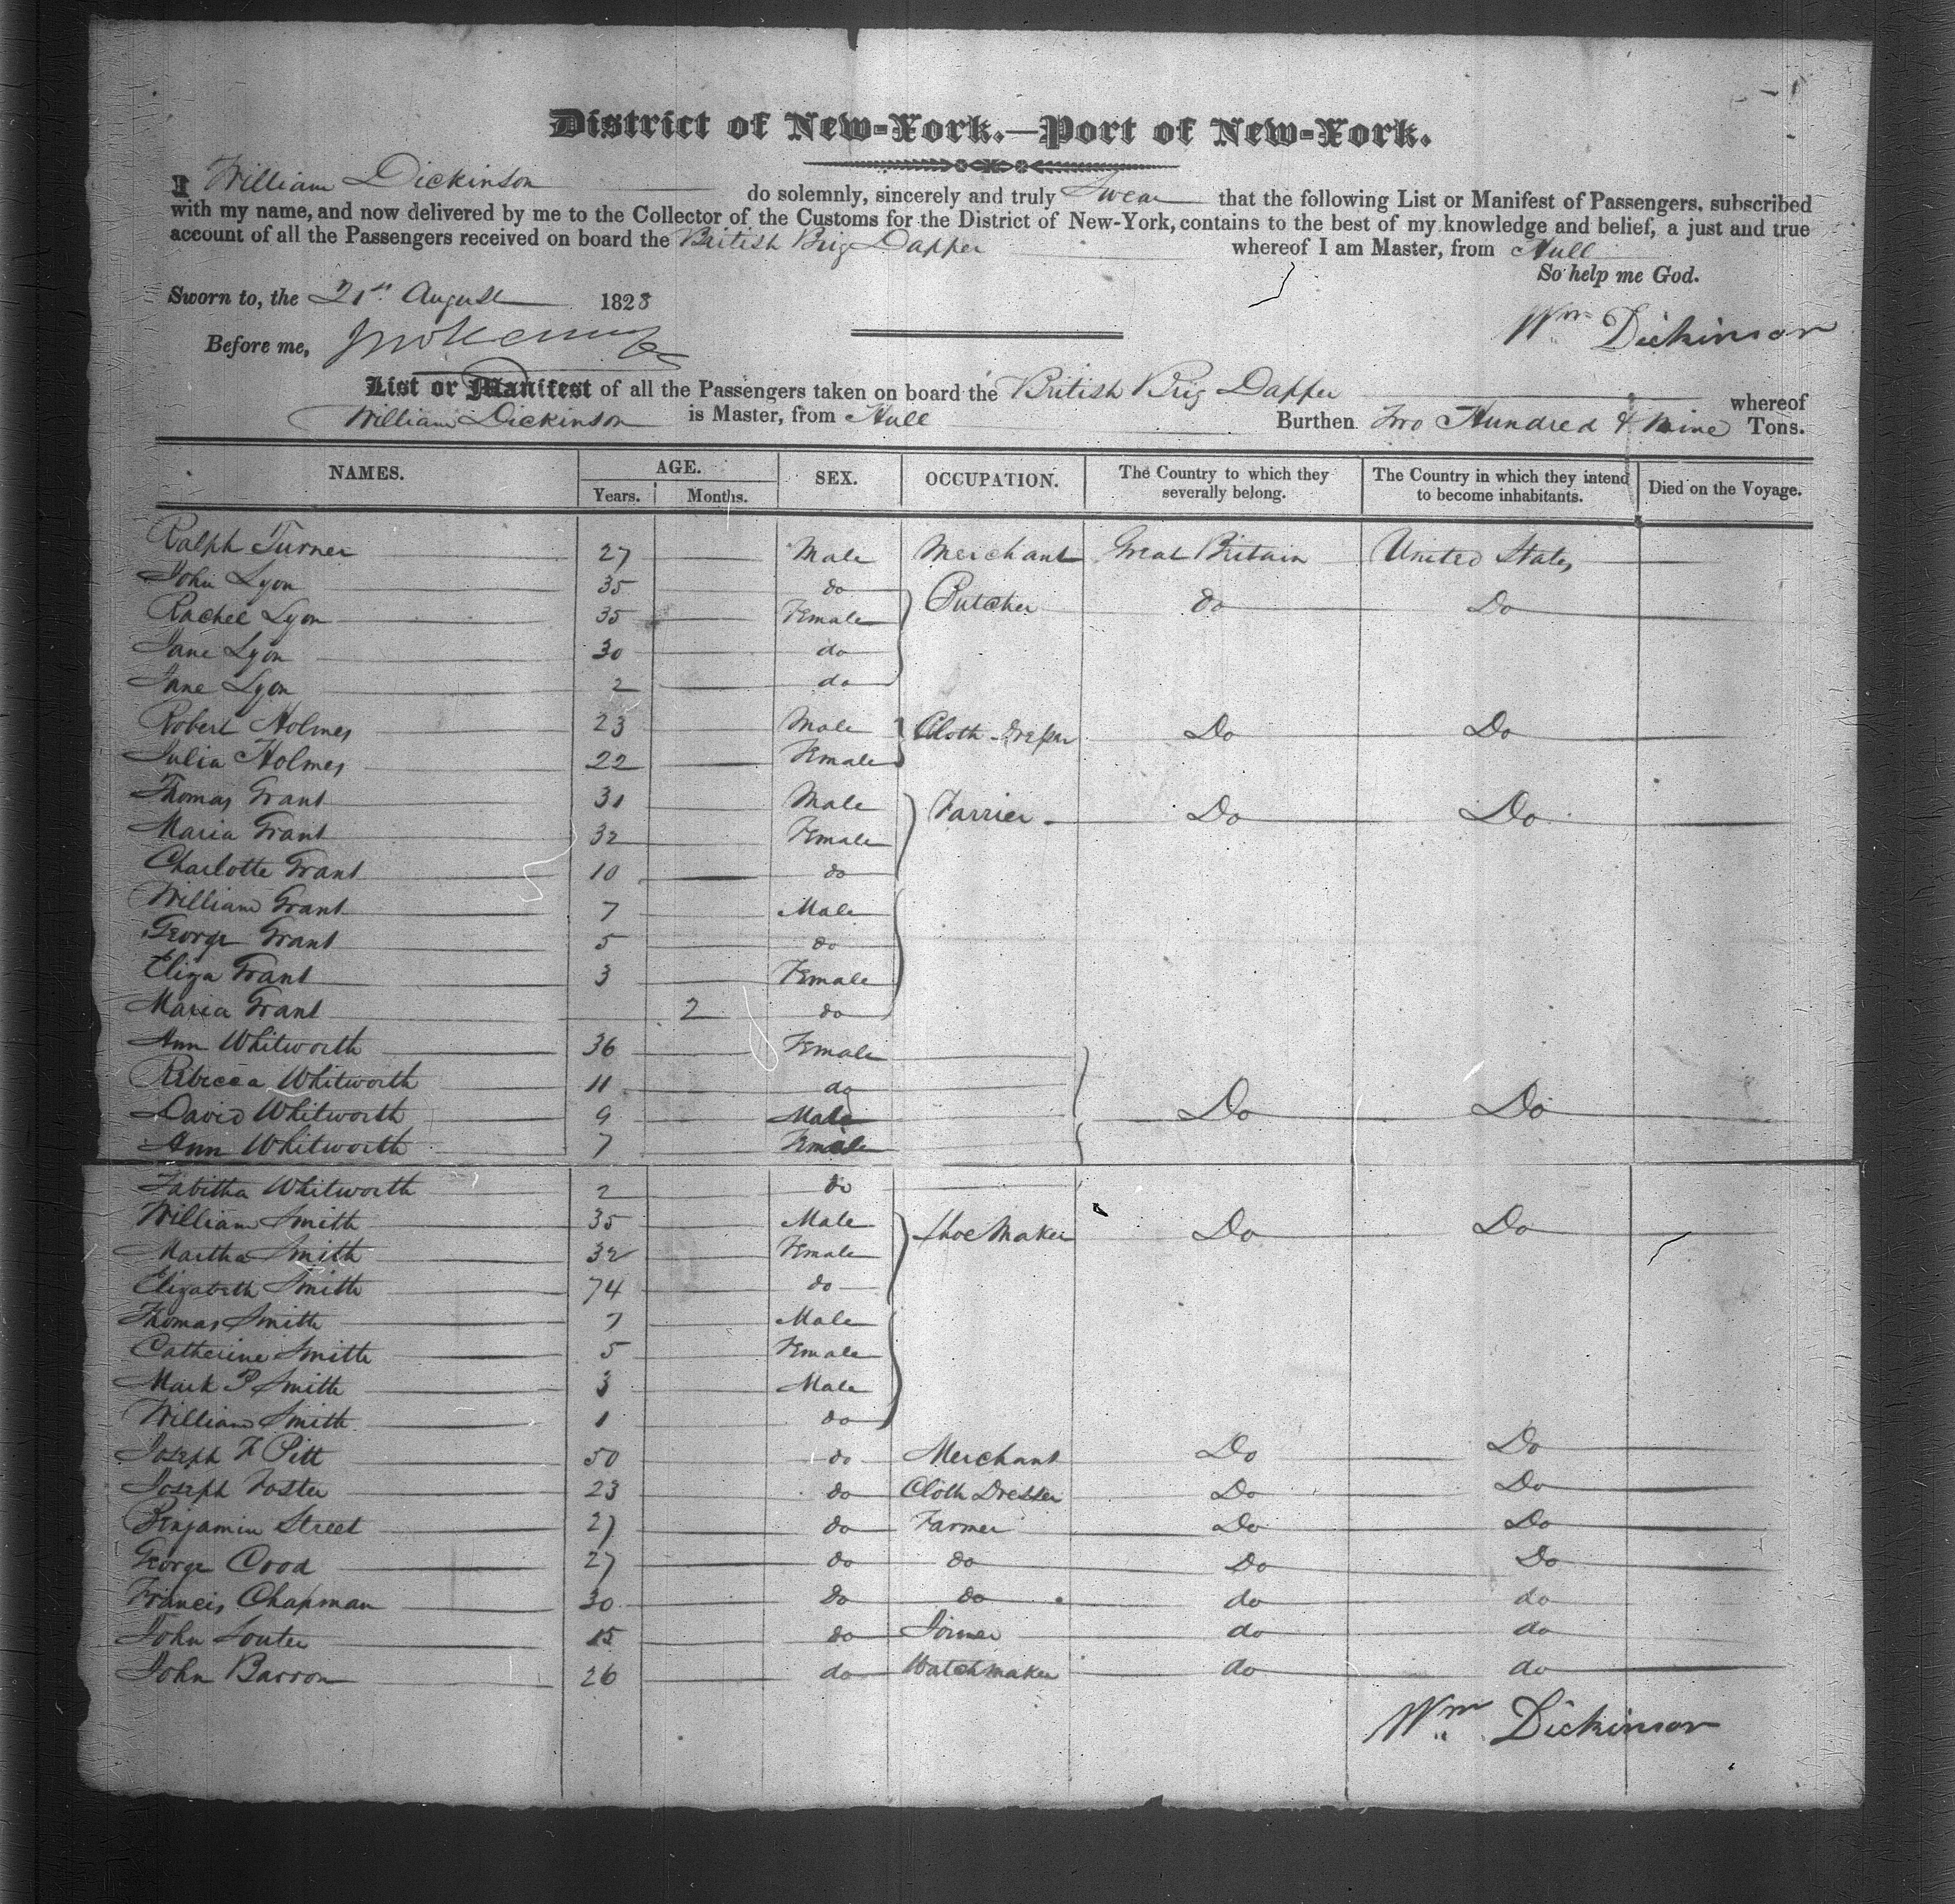 District of New-York.—Port of New-York.
I William Dickinson do solemnly, sincerely and truly Swear that the following List or Manifest of Passengers, subscribed
with my name, and now delivered by me to the Collector of the Customs for the District of New-York, contains to the best of my knowledge and belief, a just and true
account of all the Passengers received on board the British Brig Dapper whereof I am Master, from Hull
So help me God.
Sworn to, the 21st August 1828
Wm Dickinson
Before me,
List or Manifest of all the Passengers taken on board the British Brig Dapper whereof
William Dickinson is Master, from Hull Burthen Two Hundred & Nine Tons.
NAMES. AGE. SEX. OCCUPATION. The Country to which they severally belong. The Country in which they intend to become inhabitants. Died on the Voyage.
Years. Months.
Ralph Turner 27 Male Merchant Great Britain United States
John Lyon 35 do Butcher do Do
Rachel Lyon 35 Female
Jane Lyon 30 do
Jane Lyon 2 do
Robert Holmes 23 Male Cloth Dresser Do Do
Julia Holmes 22 Female
Thomas Grant 31 Male Farrier Do Do
Maria Grant 32 Female
Charlotte Grant 10 do
William Grant 7 Male
George Grant 5 do
Eliza Grant 3 Female
Maria Grant 2 do
Ann Whitworth 36 Female
Rebecca Whitworth 11 do
David Whitworth 9 Male Do Do
Ann Whitworth 7 Female
Tabitha Whitworth 2 do
William Smith 35 Male Shoe Maker Do Do
Martha Smith 32 Female
Elizabeth Smith 74 do
Thomas Smith 7 Male
Catherine Smith 5 Female
Mark P Smith 3 Male
William Smith 1 do
Joseph F Pitt 50 do Merchant Do Do
Joseph Foster 23 do Cloth Dresser Do Do
Benjamin Street 27 do Farmer Do Do
George Crod 27 do do Do Do
Francis Chapman 30 do do do do
John Souter 15 do Joiner do do
John Barron 26 do Watchmaker do do
Wm Dickinson